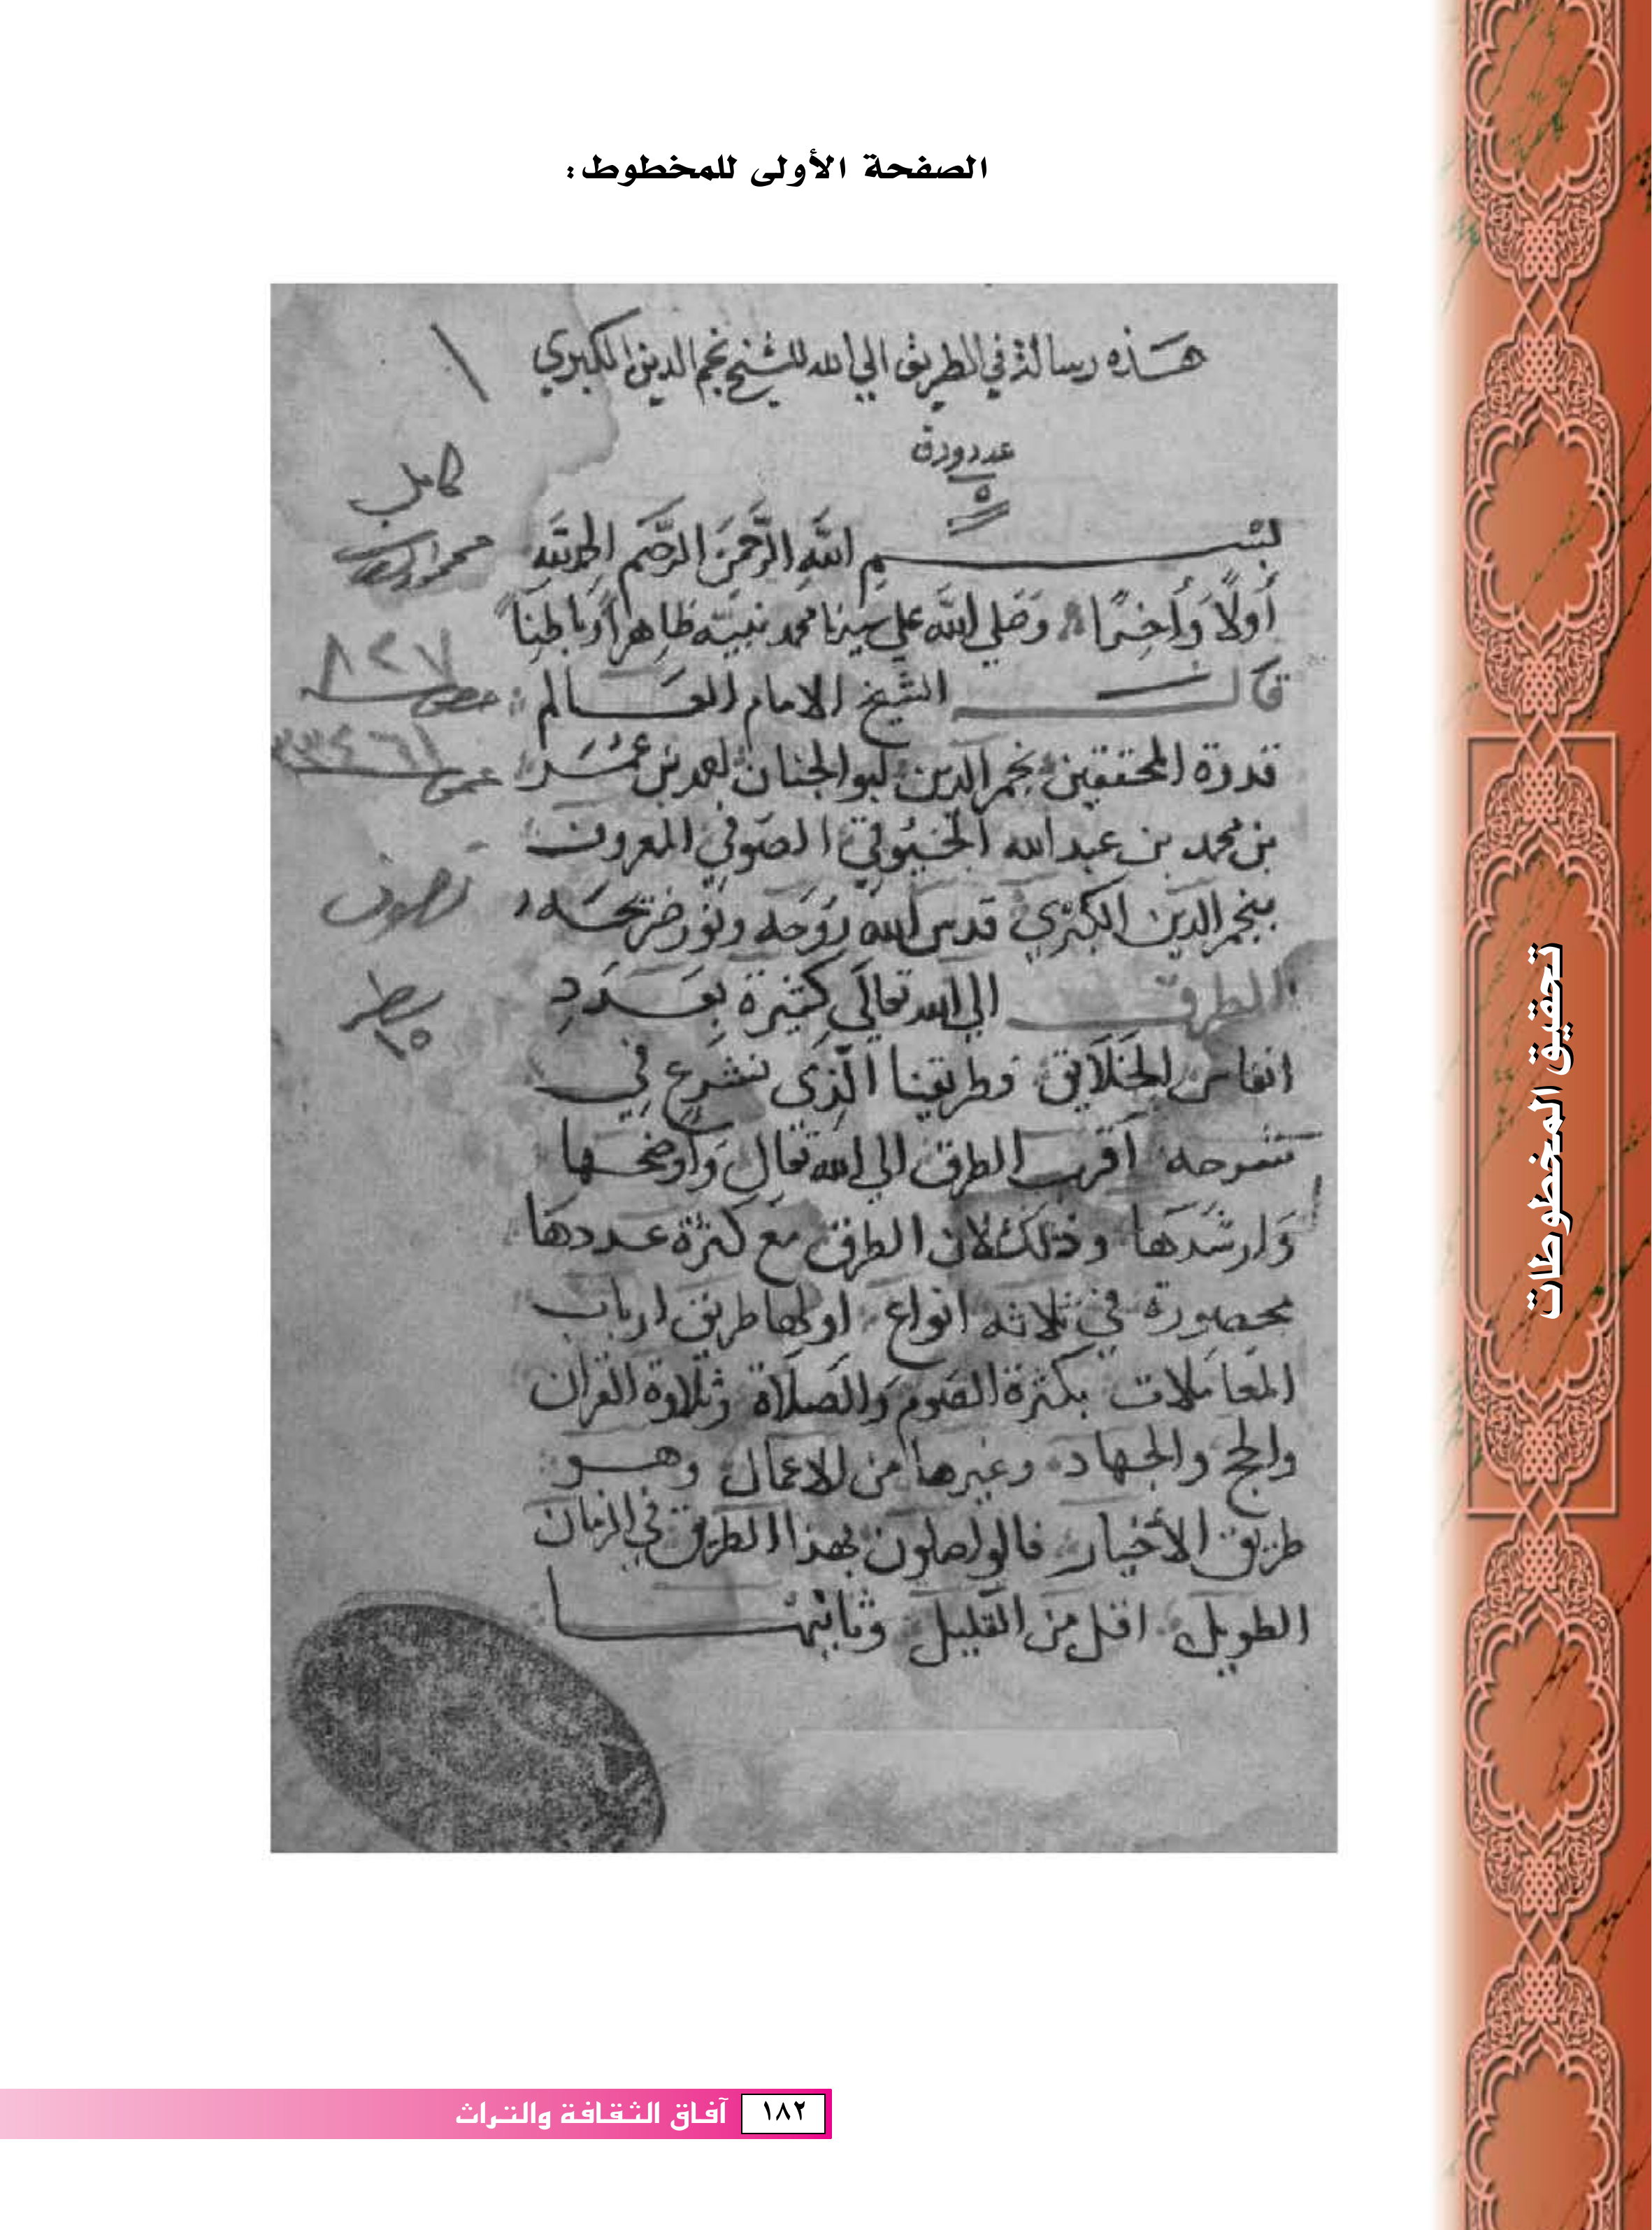 الصفحة الأولى للمخطوط:
هذه رسالة في الطريق الي الله للشيخ نجم الدين الكبري
عدد ورق
٥
بسم الله الرحمن الرحيم الحمد لله
أولاً وأخرًا وصلي الله علي سيدنا محمد نبيه ظاهراً وباطناً
قال الشيخ الامام العالم
قدوة المحققين نجم الدين ابو الجنان احمد بن عمر
بن محمد بن عبد الله الخيوقي الصوفي المعروف
بنجم الدين الكبري قدس الله روحه ونور ضريحه
الطرق الي الله تعالي كثيرة بعدد
انفاس الخلايق وطريقنا الذي نشرع في
شرحه أقرب الطرق الي الله تعالي وأوضحها
وارشدها وذلك لان الطرق مع كثرة عددها
محصورة في ثلاثه انواع اولها طريق ارباب
المعاملات بكثرة الصوم والصلاة وتلاوة القران
والحج والجهاد وغيرها من الاعمال وهو
طريق الأخيار فالواصلون بهذا الطريق في الزمان
الطويل اقل من القليل وثانيها
١
كامل
٨٢٧
خصوص
عمو
تصوف
سطر
١٥
تحقيق المخطوطات
١٨٢ آفاق الثقافة والتراث